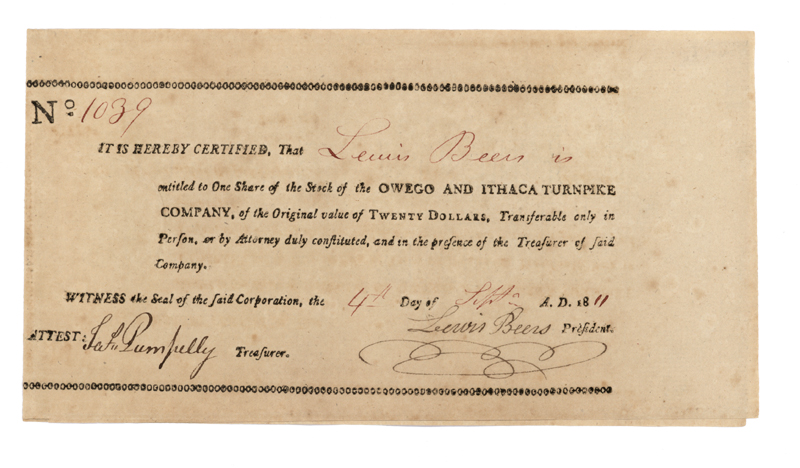 No 1039
IT IS HEREBY CERTIFIED, That Lewis Beers is
entitled to One Share of the Stock of the OWEGO AND ITHACA TURNPIKE
COMPANY, of the Original value of TWENTY DOLLARS, Transferable only in
Person, or by Attorney duly conſtituted, and in the preſence of the Treaſurer of ſaid
Company.
WITNESS the Seal of the ſaid Corporation, the 4th Day of Septr A. D. 1811
Lewis Beers Preſident.
ATTEST: Pumpelly Treaſurer.